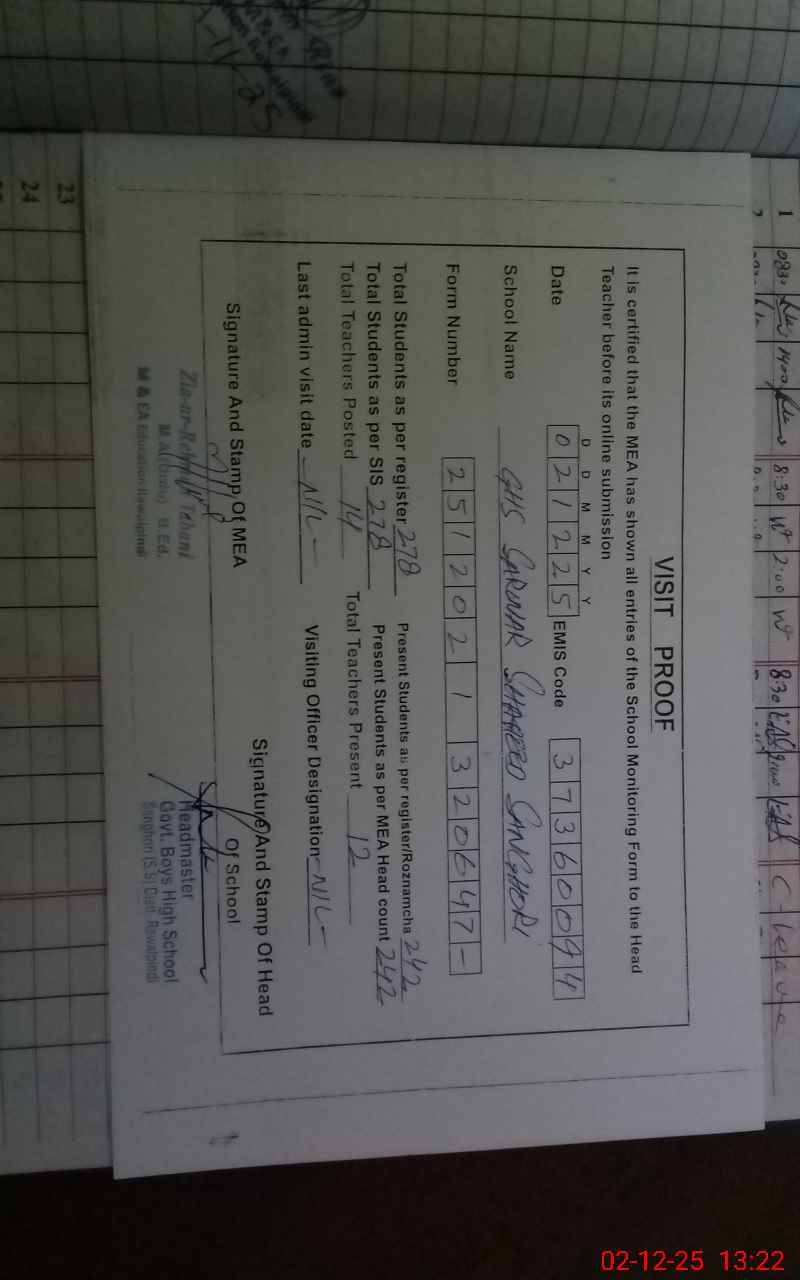 VISIT PROOF
It is certified that the MEA has shown all entries of the School Monitoring Form to the Head
Teacher before its online submission
D D M M Y Y
Date 0 2 1 2 2 5 EMIS Code 3 7 3 6 0 0 9 4
School Name GHS SARWAR SHAHEED SANGHORI
Form Number 2 5 1 2 0 2 1 3 2 0 6 4 7 -
Total Students as per register 278 Present Students as per register/Roznamcha 242
Total Students as per SIS 278 Present Students as per MEA Head count 242
Total Teachers Posted 14 Total Teachers Present 12
Last admin visit date -NIL- Visiting Officer Designation -NIL-
Signature And Stamp Of MEA
Signature And Stamp Of Head
Of School
Zia-ur-Rehman
M & EA Education Rawalpindi
Headmaster
Govt. Boys High School
Sanghori (S.S) Distt. Rawalpindi
1 8:30 2:00 8:30 C-leave
23
24
02-12-25 13:22